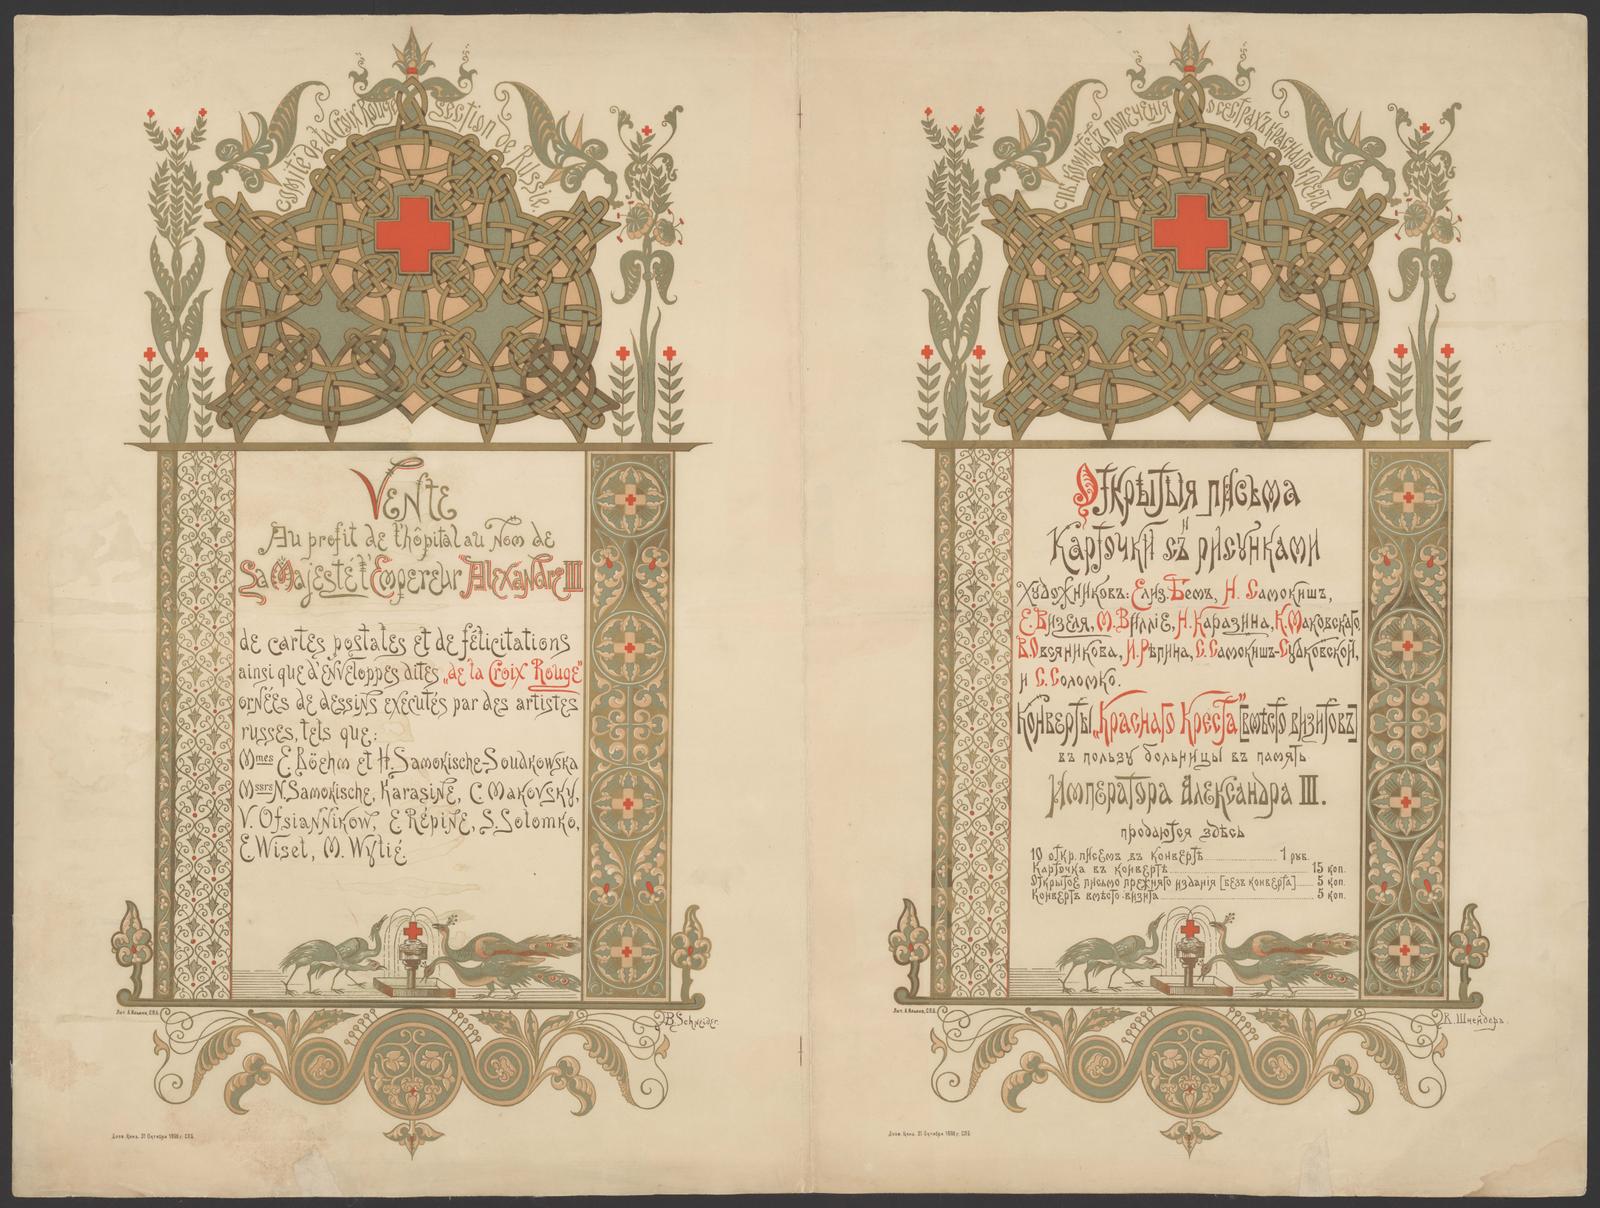 Comité de la Croix Rouge Section de Russie.
Vente
Au profit de l'hôpital au Nom de
Sa Majesté l'Empereur Alexandre III
de cartes postales et de félicitations
ainsi que d'enveloppes dites „de la Croix Rouge"
ornées de dessins executés par des artistes
russes, tels que:
Mmes E. Böehm et H. Samokische-Soudkowska
Mssrs N. Samokische, Karasine, C. Makovsky,
V. Ofsiannikow, E Répine, S. Solomko,
E Wisel, M. Wylié
Лит. А. Ильина, С.П.Б.
B. Schneider.
Дозв. Ценз. 31 Октября 1898 г. СПБ.
СПБ. Комитетъ попеченія о сестрахъ Краснаго Креста
Открытыя письма
и
Карточки съ рисунками
Художниковъ: Елиз. Бемъ, Н. Самокишъ,
Е. Визеля, М. Вилліе, Н. Каразина, К. Маковскаго,
В. Овсяникова, И. Рѣпина, Е. Самокишъ-Судковской,
и С. Соломко.
Конверты „Краснаго Креста" [вмѣсто визитовъ]
въ пользу больницы въ память
Императора Александра III.
продаются здѣсь
10 откр. писемъ въ конвертѣ 1 руб.
Карточка въ конвертѣ 15 коп.
Открытое письмо прежняго изданія [безъ конверта] 5 коп.
Конвертъ вмѣсто-визита 5 коп.
Лит. А. Ильина, С.П.Б.
В. Шнейдеръ.
Дозв. Ценз. 31 Октября 1898 г. СПБ.